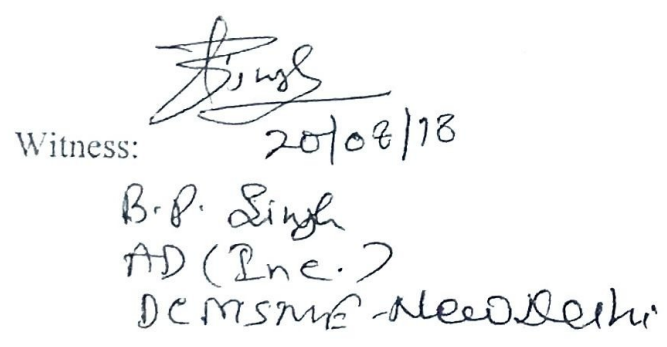 Singh
Witness: 20/08/18
B.P. Singh
AD (Inc.)
DCMSME-New Delhi